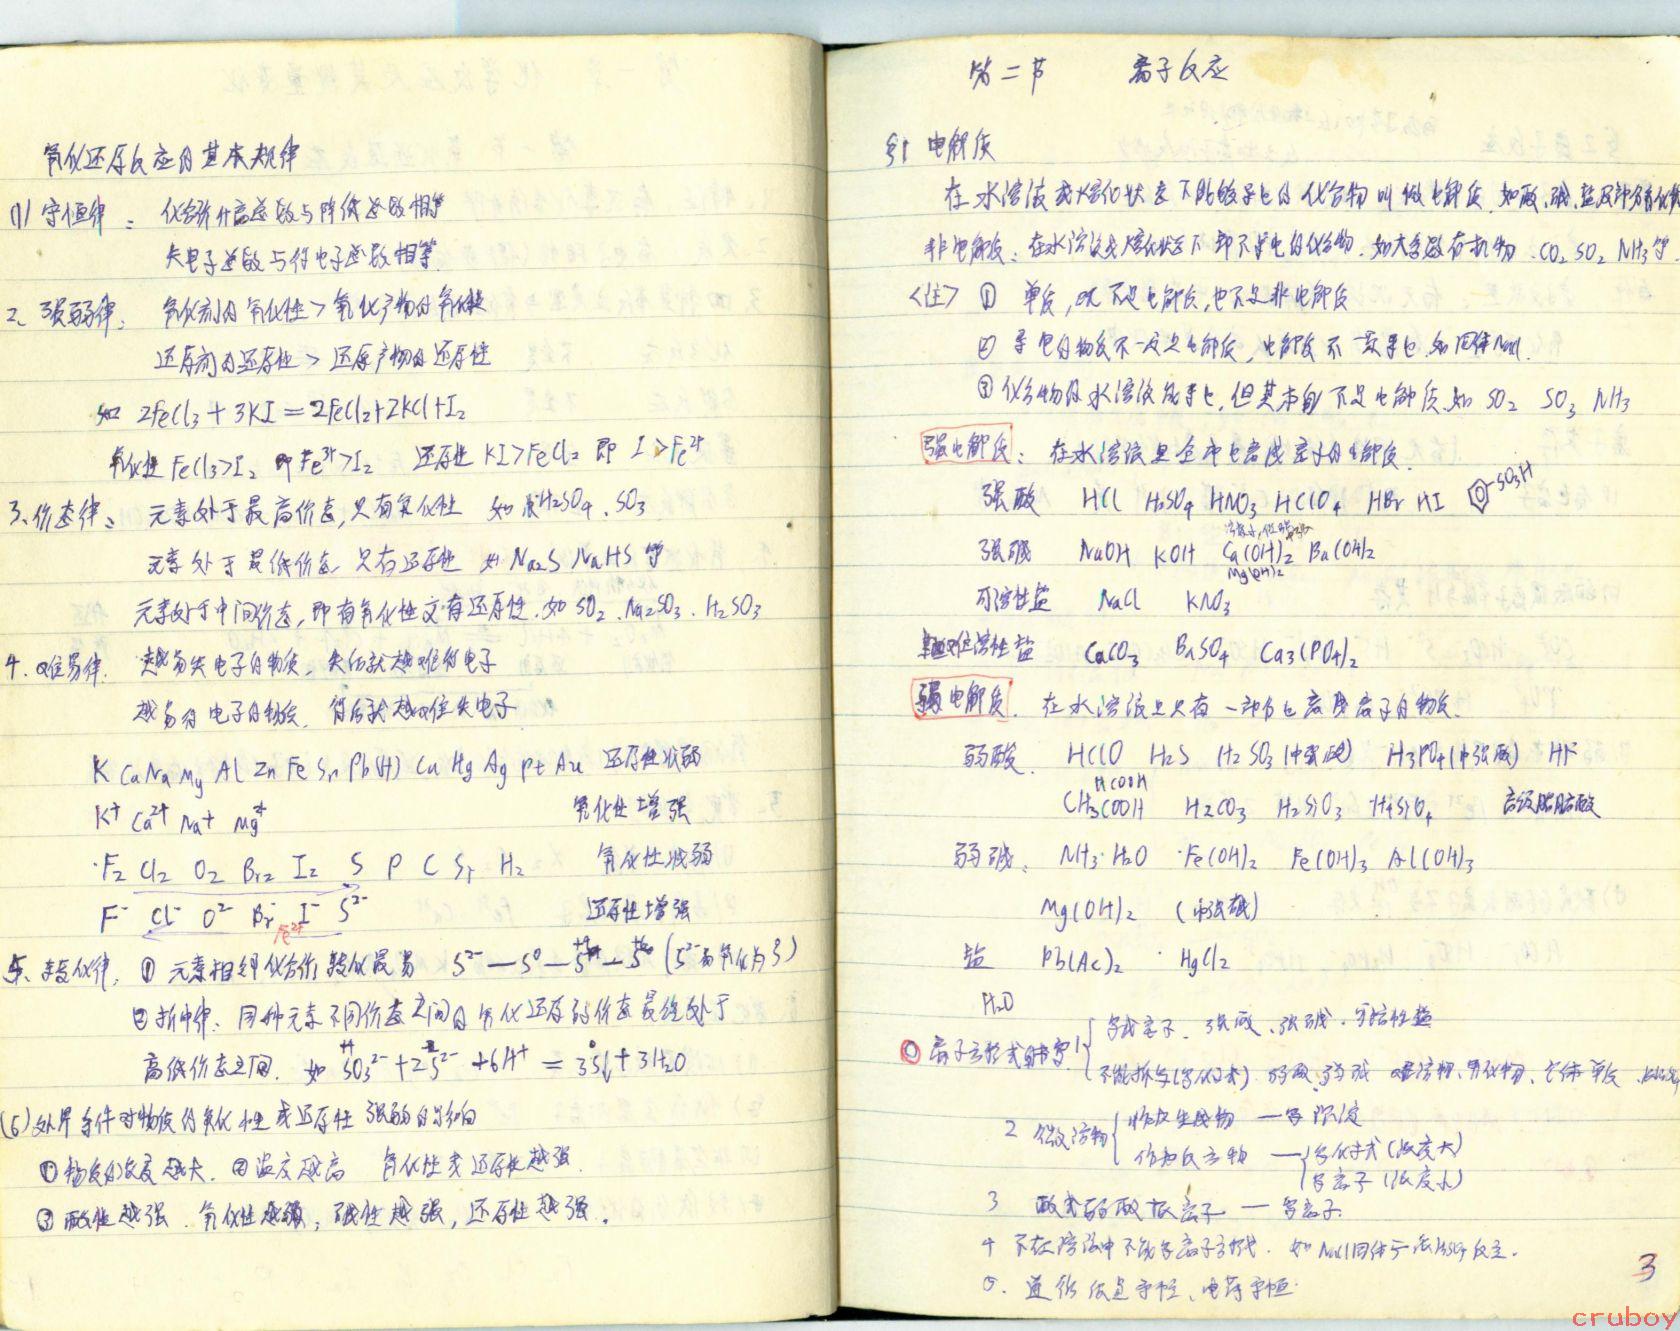 氧化还原反应的基本规律
(1) 守恒律: 化合价升高总数与降低总数相等
失电子总数与得电子总数相等
2、强弱律: 氧化剂的氧化性>氧化产物的氧化性
还原剂的还原性>还原产物的还原性
如 2FeCl3+3KI=2FeCl2+2KCl+I2
氧化性 FeCl3>I2 即 Fe3+>I2 还原性 KI>FeCl2 即 I->Fe2+
3、价态律: 元素处于最高价态,只有氧化性 如 浓H2SO4、SO3
元素处于最低价态 只有还原性 如 Na2S NaHS 等
元素处于中间价态,即有氧化性又有还原性.如 SO2、Na2SO3、H2SO3
4、难易律. 越易失电子的物质,失后就越难得电子
越易得电子的物质、得后就越难失电子
K Ca Na Mg Al Zn Fe Sn Pb (H) Cu Hg Ag Pt Au 还原性减弱
K+ Ca2+ Na+ Mg2+ 氧化性增强
F2 Cl2 O2 Br2 I2 S P C Si H2 氧化性减弱
F- Cl- O2- Br- I- S2- 还原性增强
Fe2+
5、转化律. ① 元素相邻化合价转化最易 S2- — S0 — S+4 — S+6 (S2-易氧化为S)
② 折中律: 同种元素不同价态之间的氧化还原的价态最终处于
高低价态之间. 如 SO32-+2S2-+6H+=3S↓+3H2O
(6) 外界条件对物质的氧化性或还原性强弱的影响
① 物质的浓度越大. ② 温度越高 氧化性或还原性越强.
③ 酸性越强、氧化性越强; 碱性越强,还原性越强.
第二节 离子反应
§1 电解质
在水溶液或熔化状态下能够导电的化合物叫做电解质.如酸、碱、盐及部分氧化物
非电解质: 在水溶液或熔化状态下都不导电的化合物.如大多数有机物.CO2 SO2 NH3等.
<注> ① 单质,既不是电解质,也不是非电解质
② 导电的物质不一定是电解质,电解质不一定导电.如固体NaCl.
③ 化合物的水溶液能导电,但其本身不是电解质.如 SO2 SO3 NH3
强电解质: 在水溶液里全部电离成离子的电解质.
强酸 HCl H2SO4 HNO3 HClO4 HBr HI -SO3H
强碱 NaOH KOH Ca(OH)2 Ba(OH)2
Mg(OH)2
可溶性盐 NaCl KNO3
难溶性盐 CaCO3 BaSO4 Ca3(PO4)2
弱电解质. 在水溶液里只有一部分电离成离子的物质.
弱酸. HClO H2S H2SO3(中强酸) H3PO4(中强酸) HF
HCOOH
CH3COOH H2CO3 H2SiO3 H4SiO4 高级脂肪酸
弱碱: NH3·H2O Fe(OH)2 Fe(OH)3 Al(OH)3
Mg(OH)2 (中强碱)
盐 Pb(Ac)2 HgCl2
H2O
离子方程式书写 1 写成离子. 强酸、强碱、可溶性盐
不能拆写(写化学式) 弱酸、弱碱 难溶物、氧化物、气体 单质
2 微溶物 作为生成物 — 写沉淀
作为反应物 — 写化学式(浓度大)
写离子(浓度小)
3 酸式弱酸根离子 — 写离子.
4 不在溶液中不能写离子方程式. 如NaCl固体与浓H2SO4反应.
5. 遵循质量守恒、电荷守恒.
3
cruboy